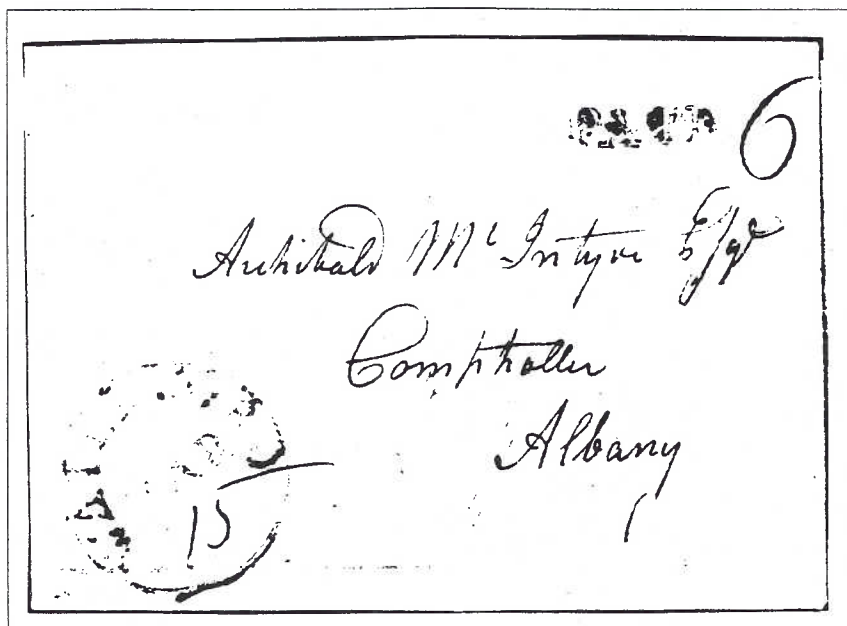 PAID 6
Archibald Mc Intyre Esqr
Comptroller
Albany
15